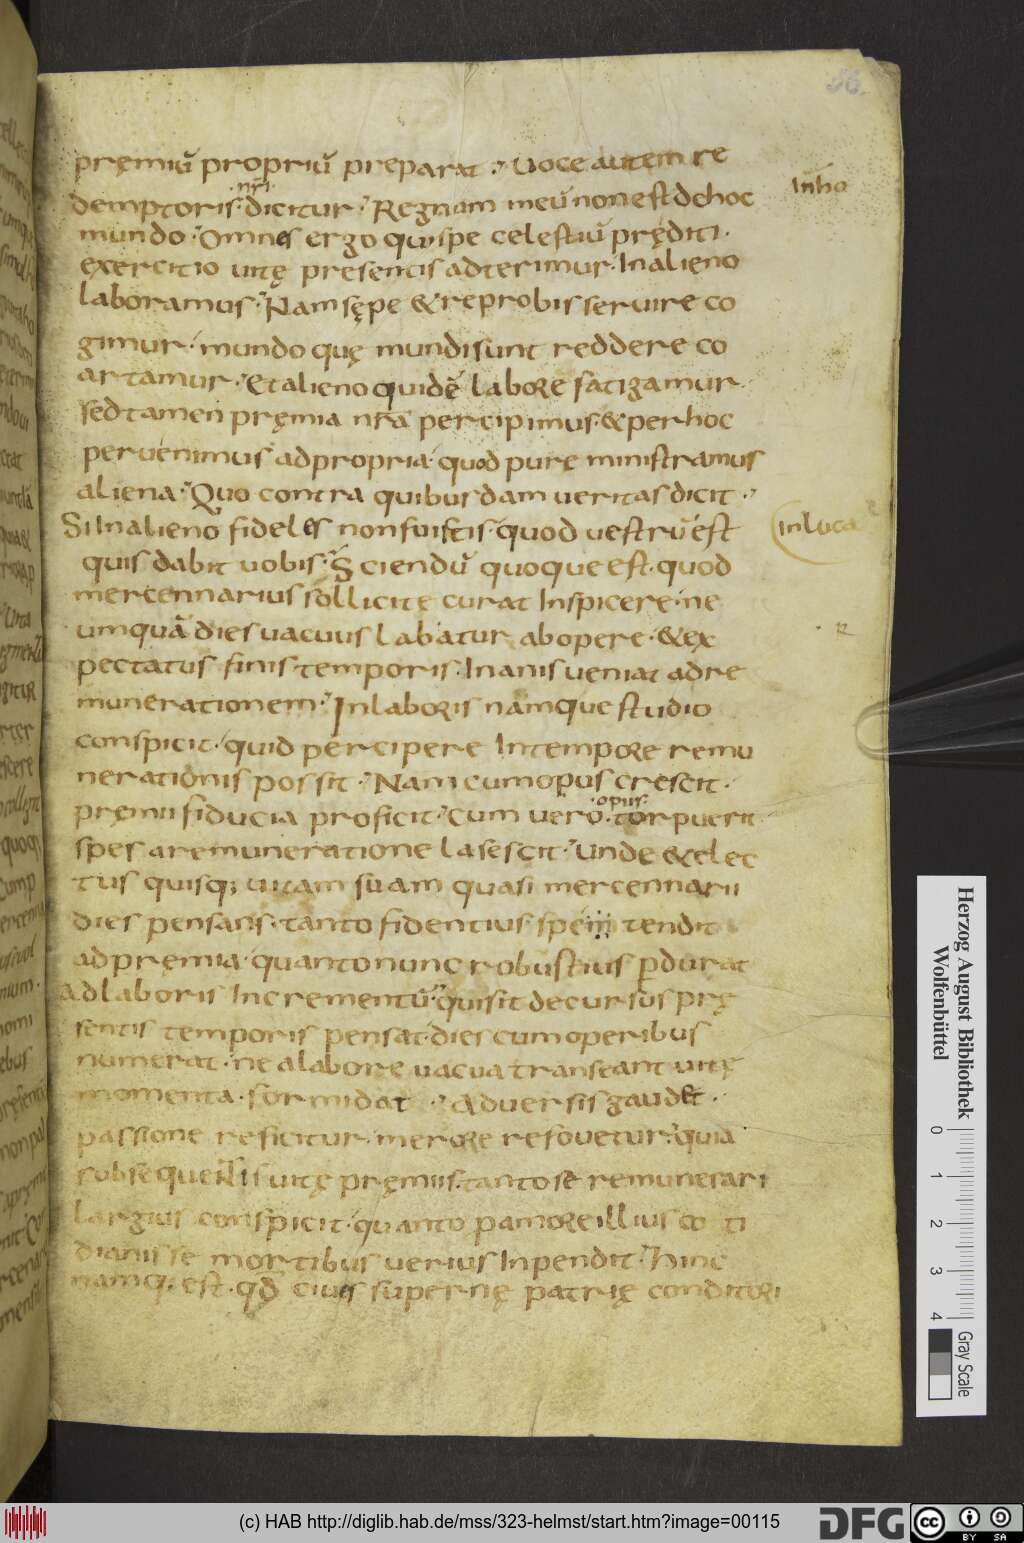 56.
pręmiū propriū preparat. Uoce autem re
demptoris nr̄i dicitur. Regnum meū non est de hoc
Inho
mundo. Omnes ergo qui spe celestiū pręditi.
exercitio uitę presentis adterimur. In alieno
laboramus. Nam sępe & reprobis seruire co
gimur. mundo quę mundi sunt reddere co
artamur. Et alieno quidē labore fatigamur.
sed tamen pręmia nr̄a percipimus. & per hoc
peruenimus ad propria. quod pure ministramus
aliena. Quo contra quibusdam ueritas dicit.
Si In alieno fideles non fuistis. quod uestrū est
In luca
quis dabit uobis. Sciendū quoque est. quod
mercennarius sollicitę curat Inspicere. ne
umquā dies uacuus labatur ab opere. & ex
pectatus finis temporis. Inanis ueniat ad re
munerationem. In laboris namque studio
conspicit. quid percipere In tempore remu
nerationis possit. Nam cum opus crescit.
premii fiducia proficit. Cum uero opus torpuerit
spes a remuneratione lasescit. Unde & elec
tus quisq; uitam suam quasi mercennarii
dies pensans. tanto fidentius spem tendit
ad pręmia. quanto nunc robustius p̱durat
ad laboris Incrementū. quisit decursus prę
sentis temporis pensat. dies cum operibus
numerat. ne a labore uacua transeant uitę
momenta. formidat. Aduersis gaudet.
passione reficitur. merore refouetur. quia
subsequentis uitę pręmiis. tanto se remunerari
largius conspicit. quanto p amore illius coti
dianis se mortibus uerius Inpendit. Hinc
namq; est. qđ ciues supernę patrię conditori
Herzog August Bibliothek
Wolfenbüttel
0 1 2 3 4
Gray Scale
(c) HAB http://diglib.hab.de/mss/323-helmst/start.htm?image=00115
DFG
cc BY SA